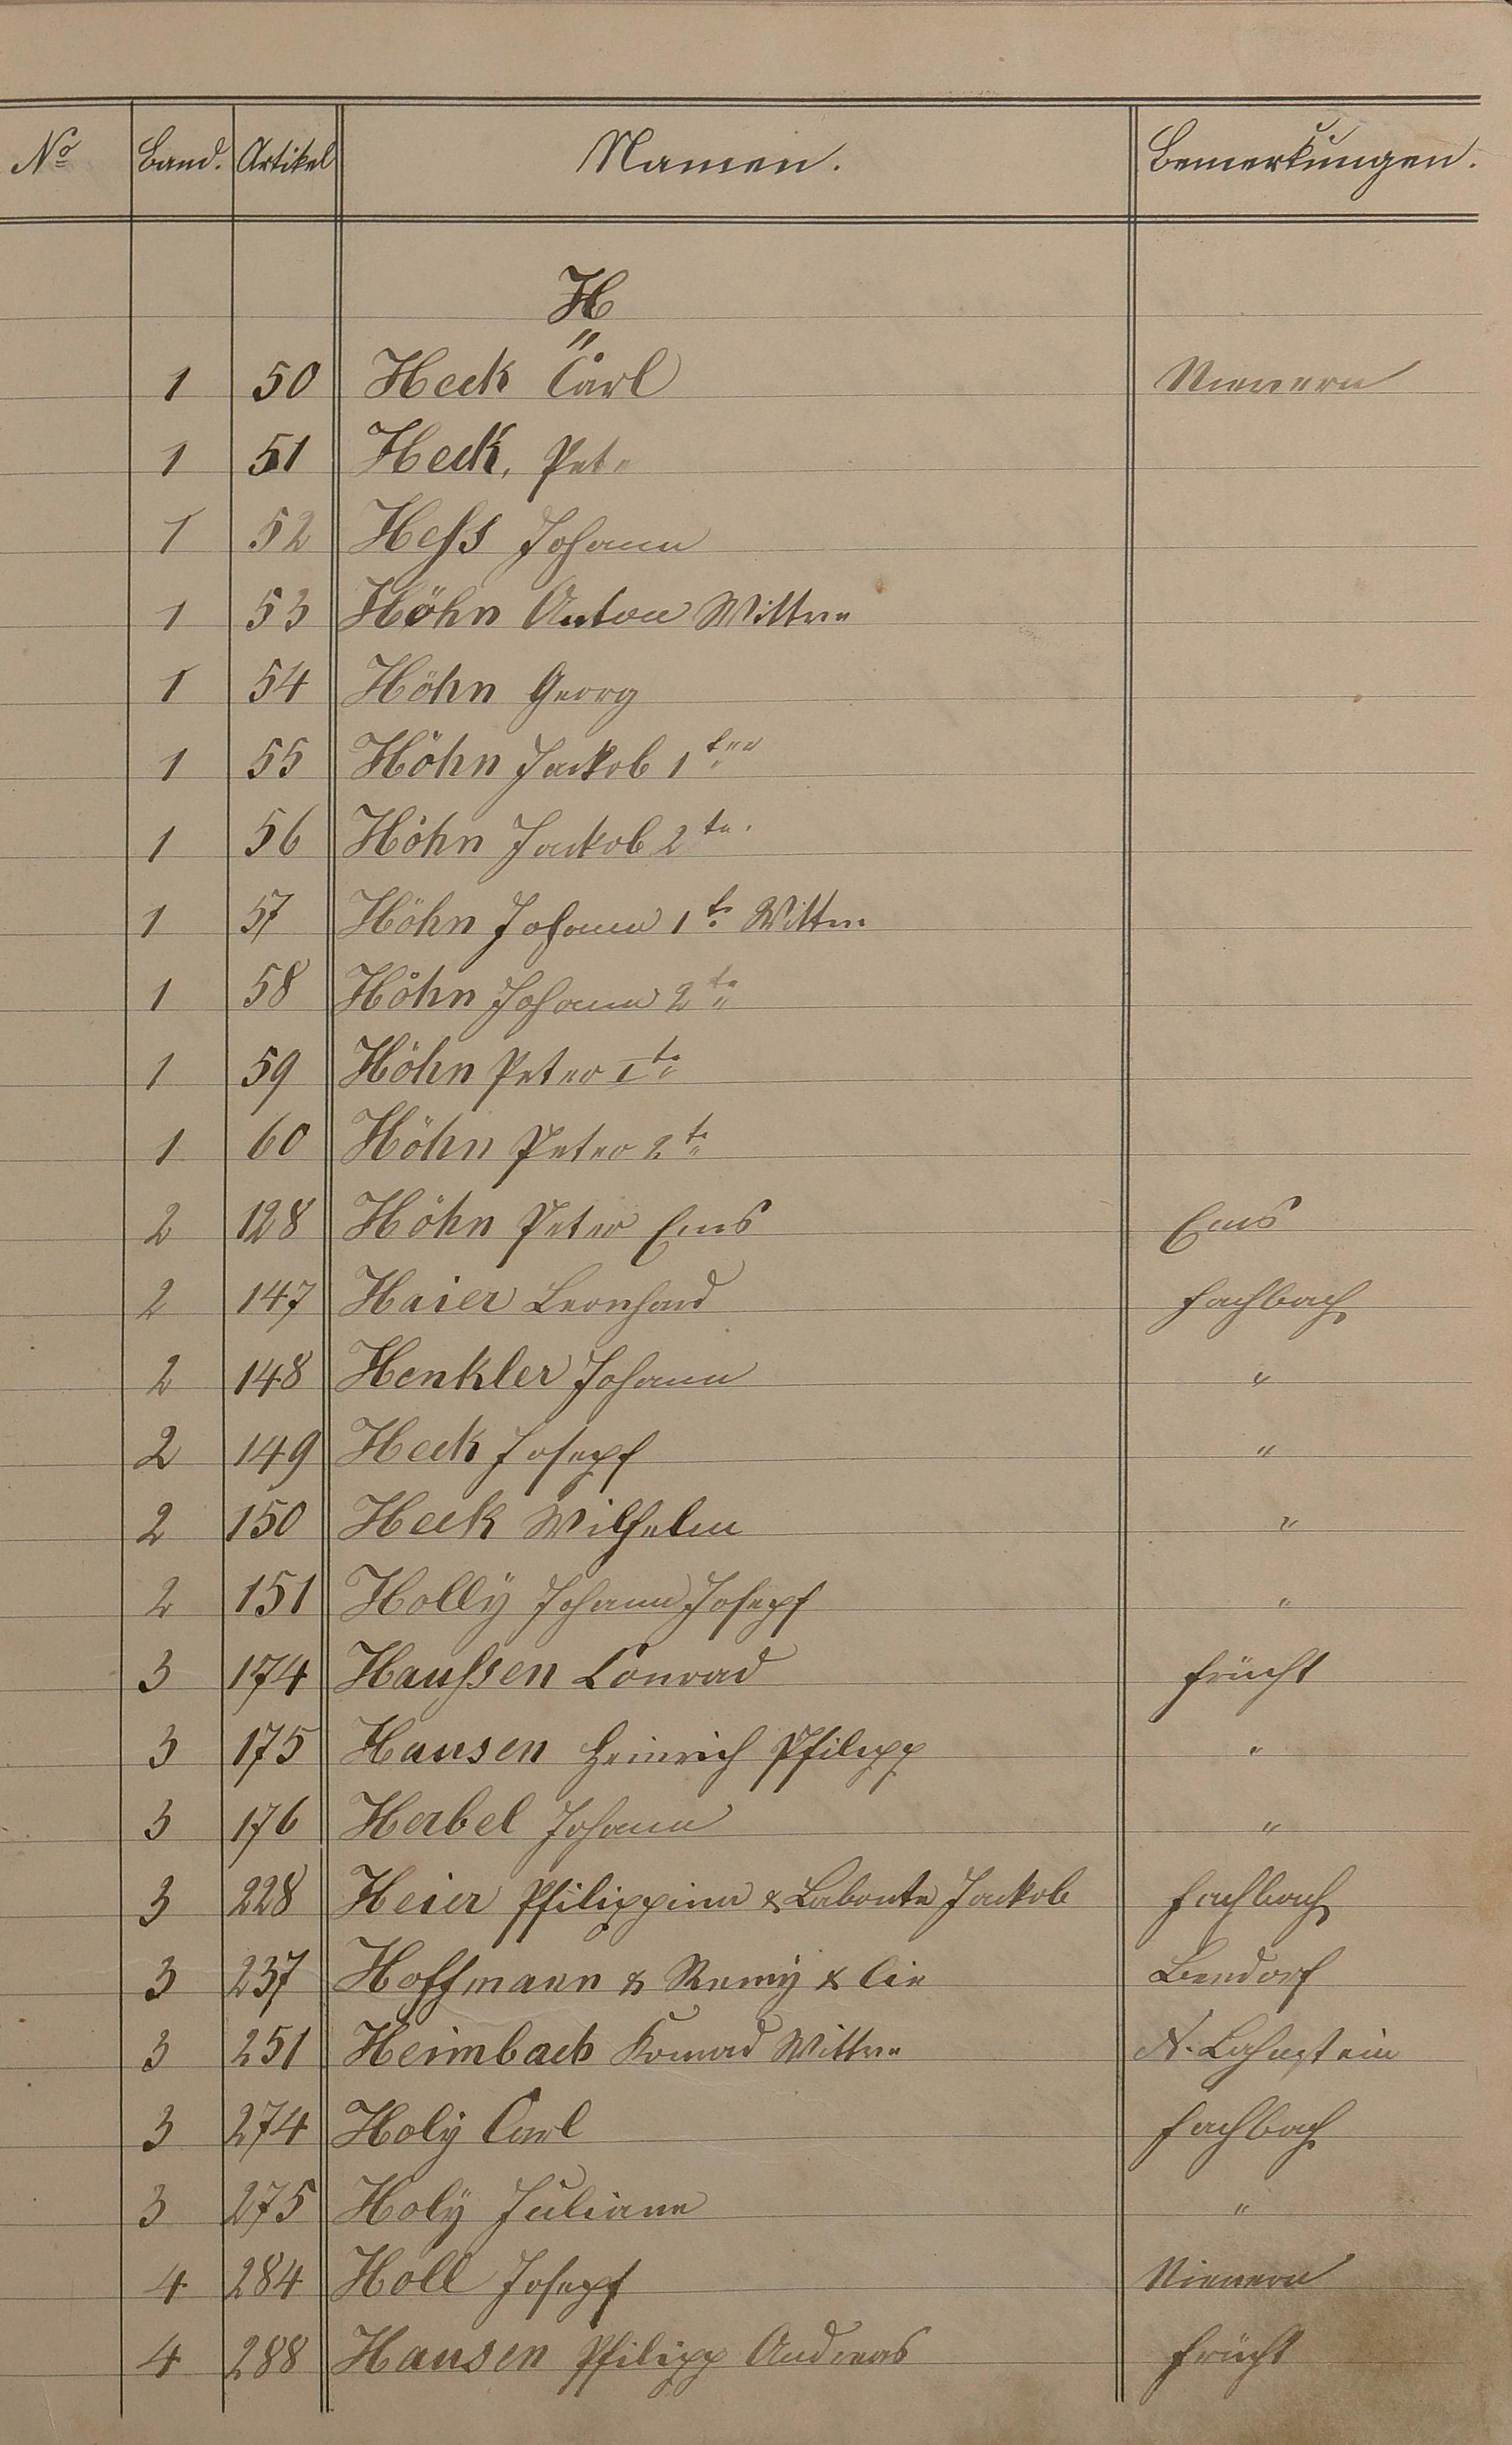 No Band. Artikel Namen. Bemerkungen.
H
"
1 50 Heck Carl Nievern
1 51 Heck, Peter
1 52 Heſs Johann
1 53 Höhn Anton Wittwe
1 54 Höhn Georg
1 55 Höhn Jackob 1ter
1 56 Höhn Jackob 2te.
1 57 Höhn Johann 1te Wittwe
1 58 Höhn Johann 2te
1 59 Höhn Peter Ite
1 60 Höhn Peter 2te
2 128 Höhn Peter Ems Ems
2 147 Haier Leonhard Fachbach
2 148 Henkler Johann "
2 149 Heck Josepf "
2 150 Heck Wilhelm "
2 151 Hollÿ Johann Josepf "
3 174 Hauſsen Conrad Frücht
3 175 Hausen Heinrich Philipp "
3 176 Herbel Johann "
3 228 Heier Philippina & Labonte Jackob Fachbach
3 237 Hoffmann & Remÿ & Cie Bendorf
3 251 Heimbach Konrad Wittwe N. Lahnstein
3 274 Holÿ Carl Fachbach
3 275 Holÿ Juliane "
4 284 Holl Josepf Nievern
4 288 Hausen Philipp Andreas Frücht